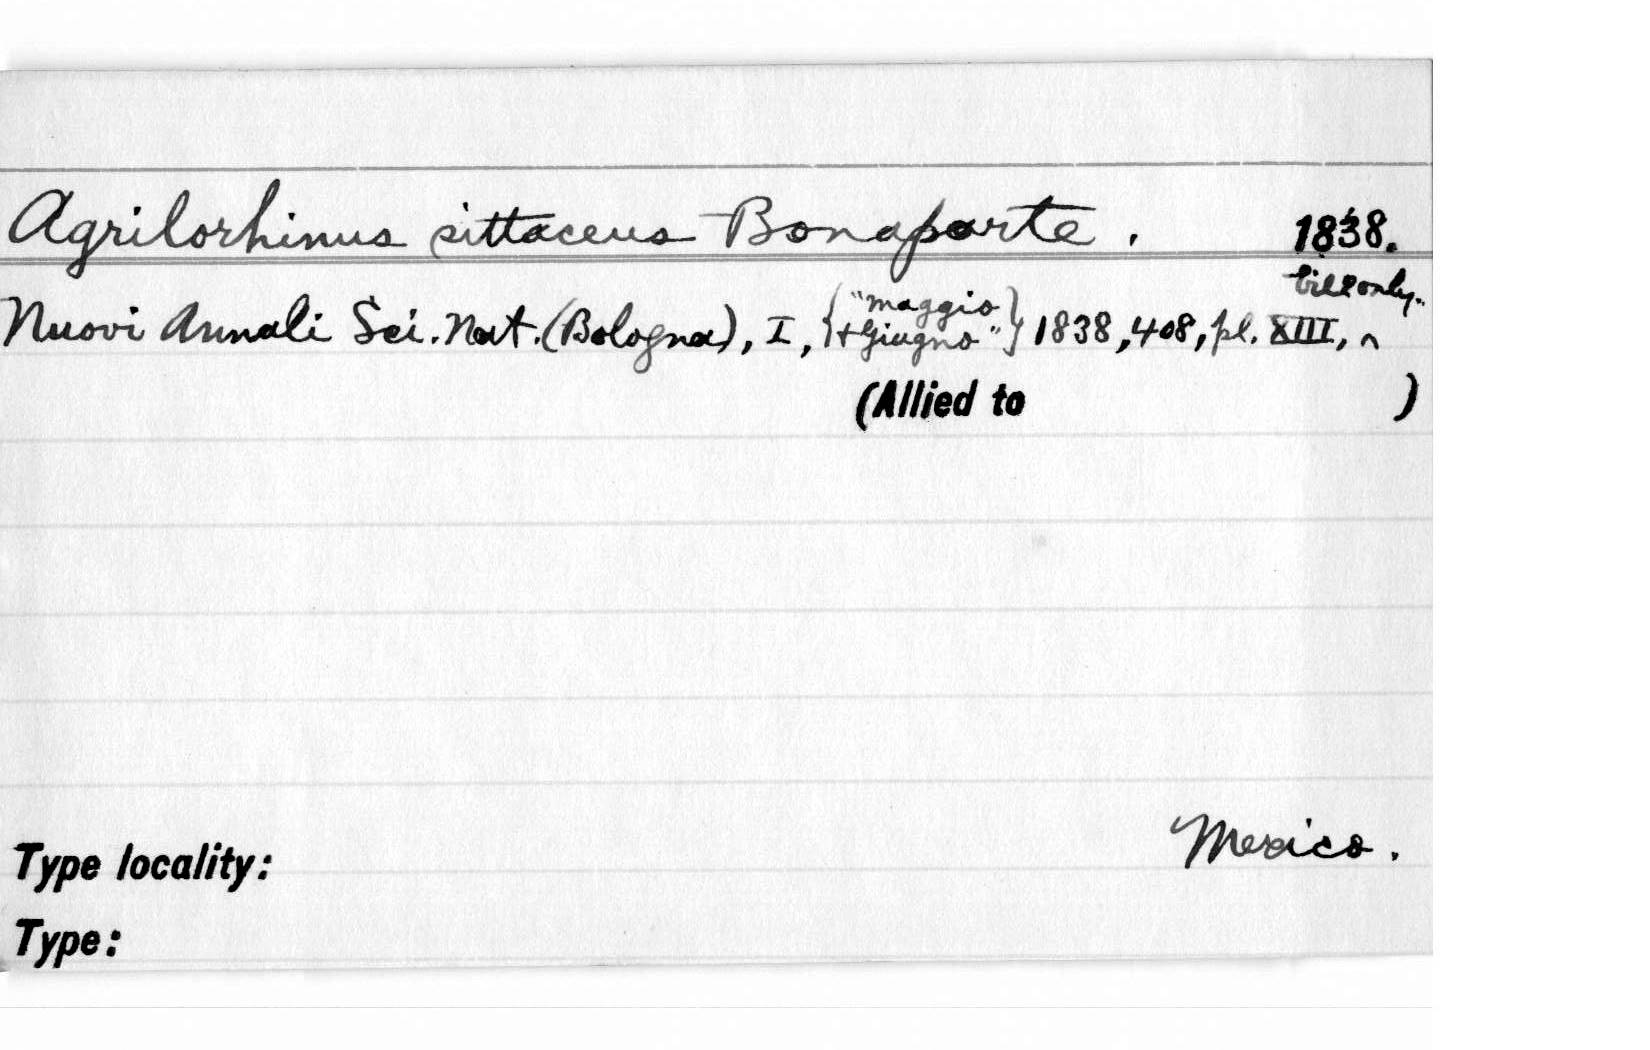 Agrilorhinus sittaceus Bonaparte. 1838.
Nuovi Annali Sci. Nat. (Bologna), I, {"maggio + Giugno"} 1838, 408, pl. XIII, ^ bill only.
(Allied to )
Type locality: Mexico.
Type: